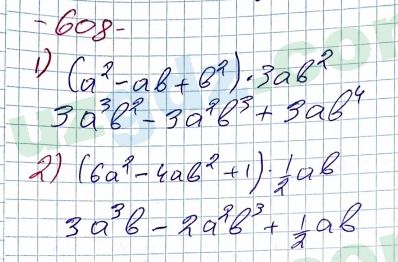 -608-
1) (a² - ab + b²) · 3ab²
3a³b² - 3a²b³ + 3ab⁴
2) (6a² - 4ab² + 1) · 1/2 ab
3a³b - 2a²b³ + 1/2 ab